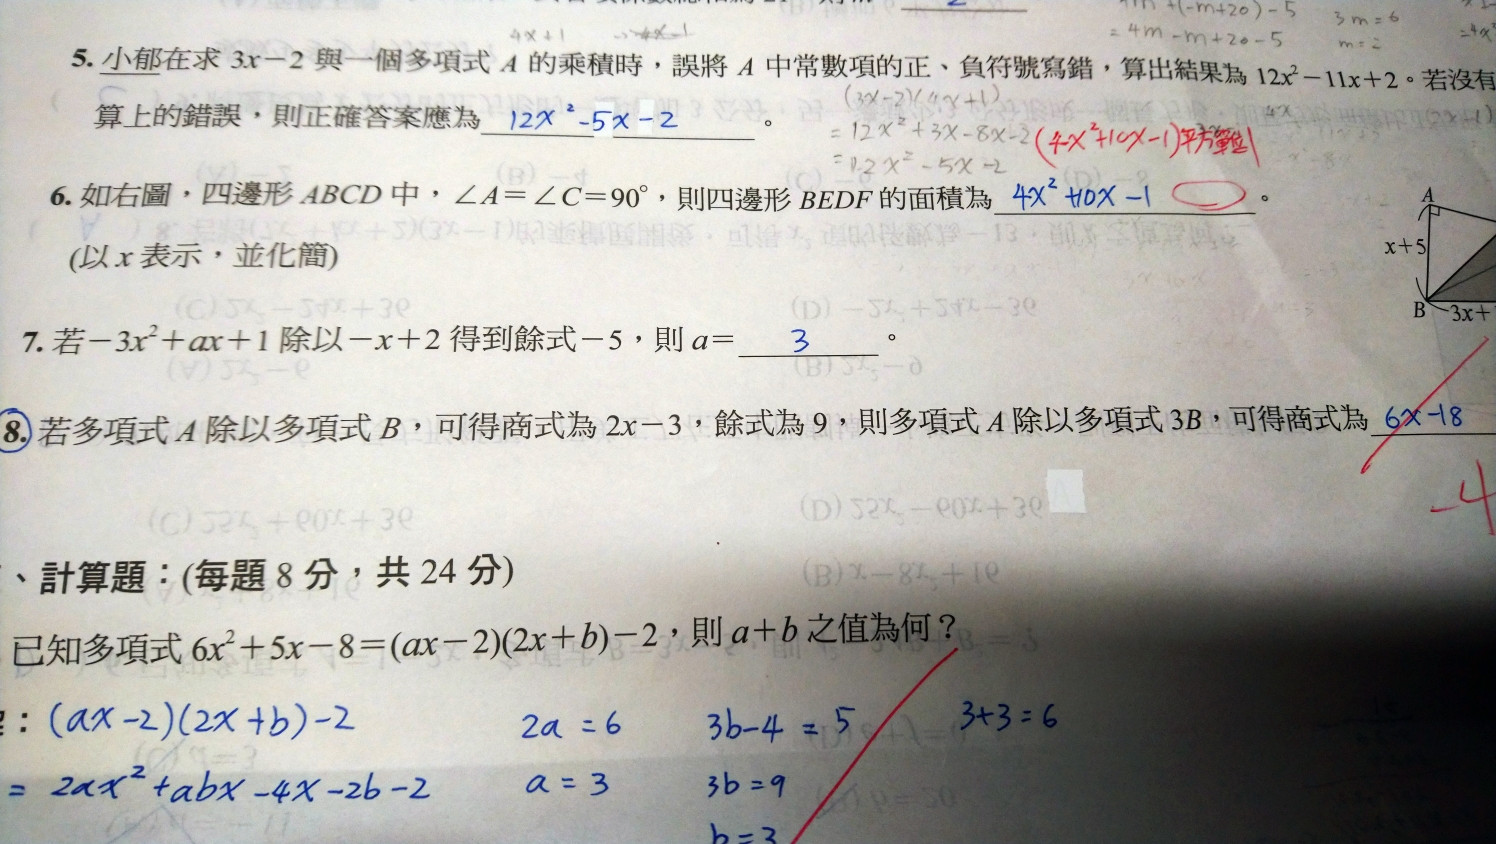 4x+1
4m+(-m+20)-5
= 4m-m+20-5
3m=6
m=2
5. 小郁在求 3x-2 與一個多項式 A 的乘積時，誤將 A 中常數項的正、負符號寫錯，算出結果為 12x²-11x+2。若沒有
算上的錯誤，則正確答案應為 12x²-5x-2 。
(3x-2)(4x+1)
= 12x²+3x-8x-2
= 12x²-5x-2
(4x²+10x-1)平方單位
6. 如右圖，四邊形 ABCD 中，∠A=∠C=90°，則四邊形 BEDF 的面積為 4x²+10x-1 。
(以 x 表示，並化簡)
A
x+5
B 3x+
7. 若-3x²+ax+1 除以-x+2 得到餘式-5，則 a= 3 。
8. 若多項式 A 除以多項式 B，可得商式為 2x-3，餘式為 9，則多項式 A 除以多項式 3B，可得商式為 6x-18
-4
、計算題：(每題 8 分，共 24 分)
已知多項式 6x²+5x-8=(ax-2)(2x+b)-2，則 a+b 之值為何？
：(ax-2)(2x+b)-2 2a=6 3b-4=5 3+3=6
= 2ax²+abx-4x-2b-2 a=3 3b=9
b=3